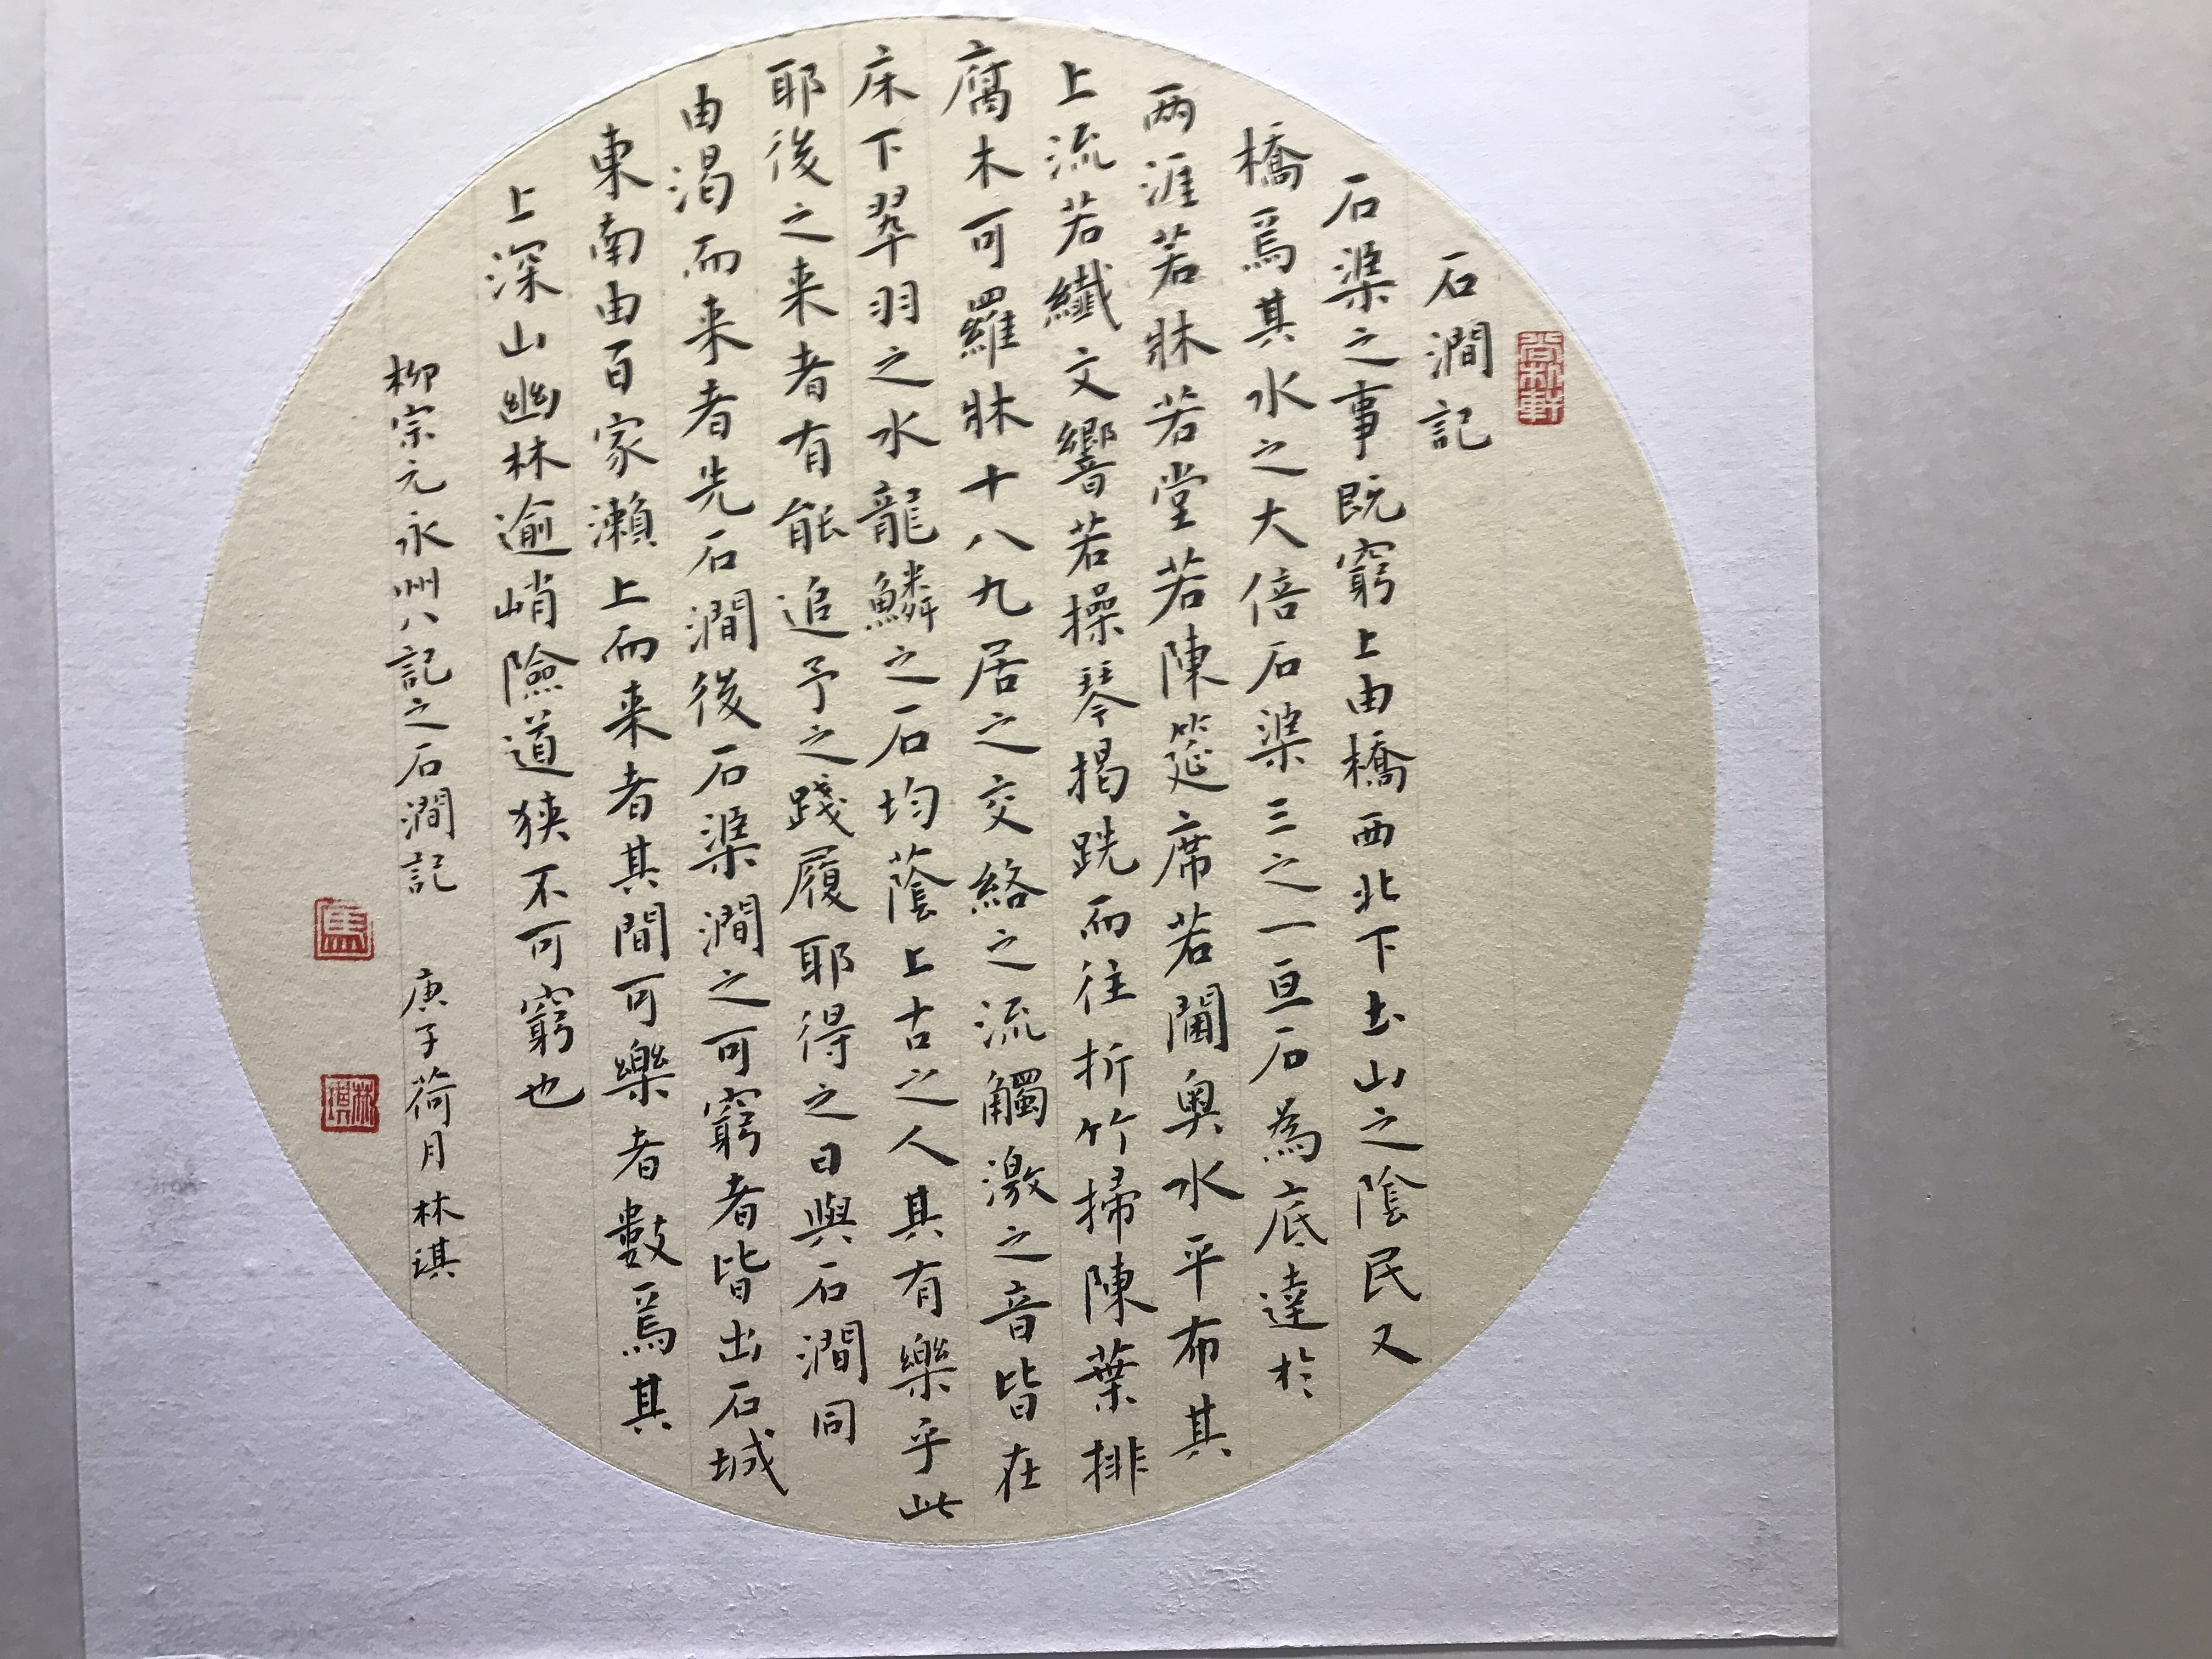 石澗記
石渠之事既窮上由橋西北下土山之陰民又
橋焉其水之大倍石渠三之一亘石為底達於
兩涯若牀若堂若陳筵席若閫奧水平布其
上流若織文響若操琴揭跣而往折竹掃陳葉排
腐木可羅牀十八九居之交絡之流觸激之音皆在
床下翠羽之水龍鱗之石均蔭上古之人其有樂乎此
耶後之来者有能追予之踐履耶得之日與石澗同
由渴而来者先石澗後石渠澗之可窮者皆出石城
東南由百家瀨上而来者其間可樂者數焉其
上深山幽林逾峭險道狹不可窮也
柳宗元永州八記之石澗記 庚子荷月林琪
馬
林琪